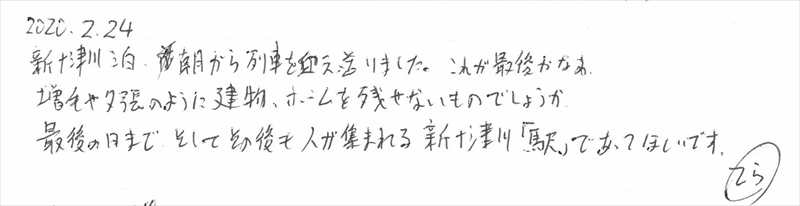 2020.2.24
新十津川泊、朝から列車を迎え送りました。これが最後かなあ
増毛や夕張のように建物、ホームを残せないものでしょうか
最後の日まで そしてその後も人が集まれる新十津川「駅」であってほしいです。
とら